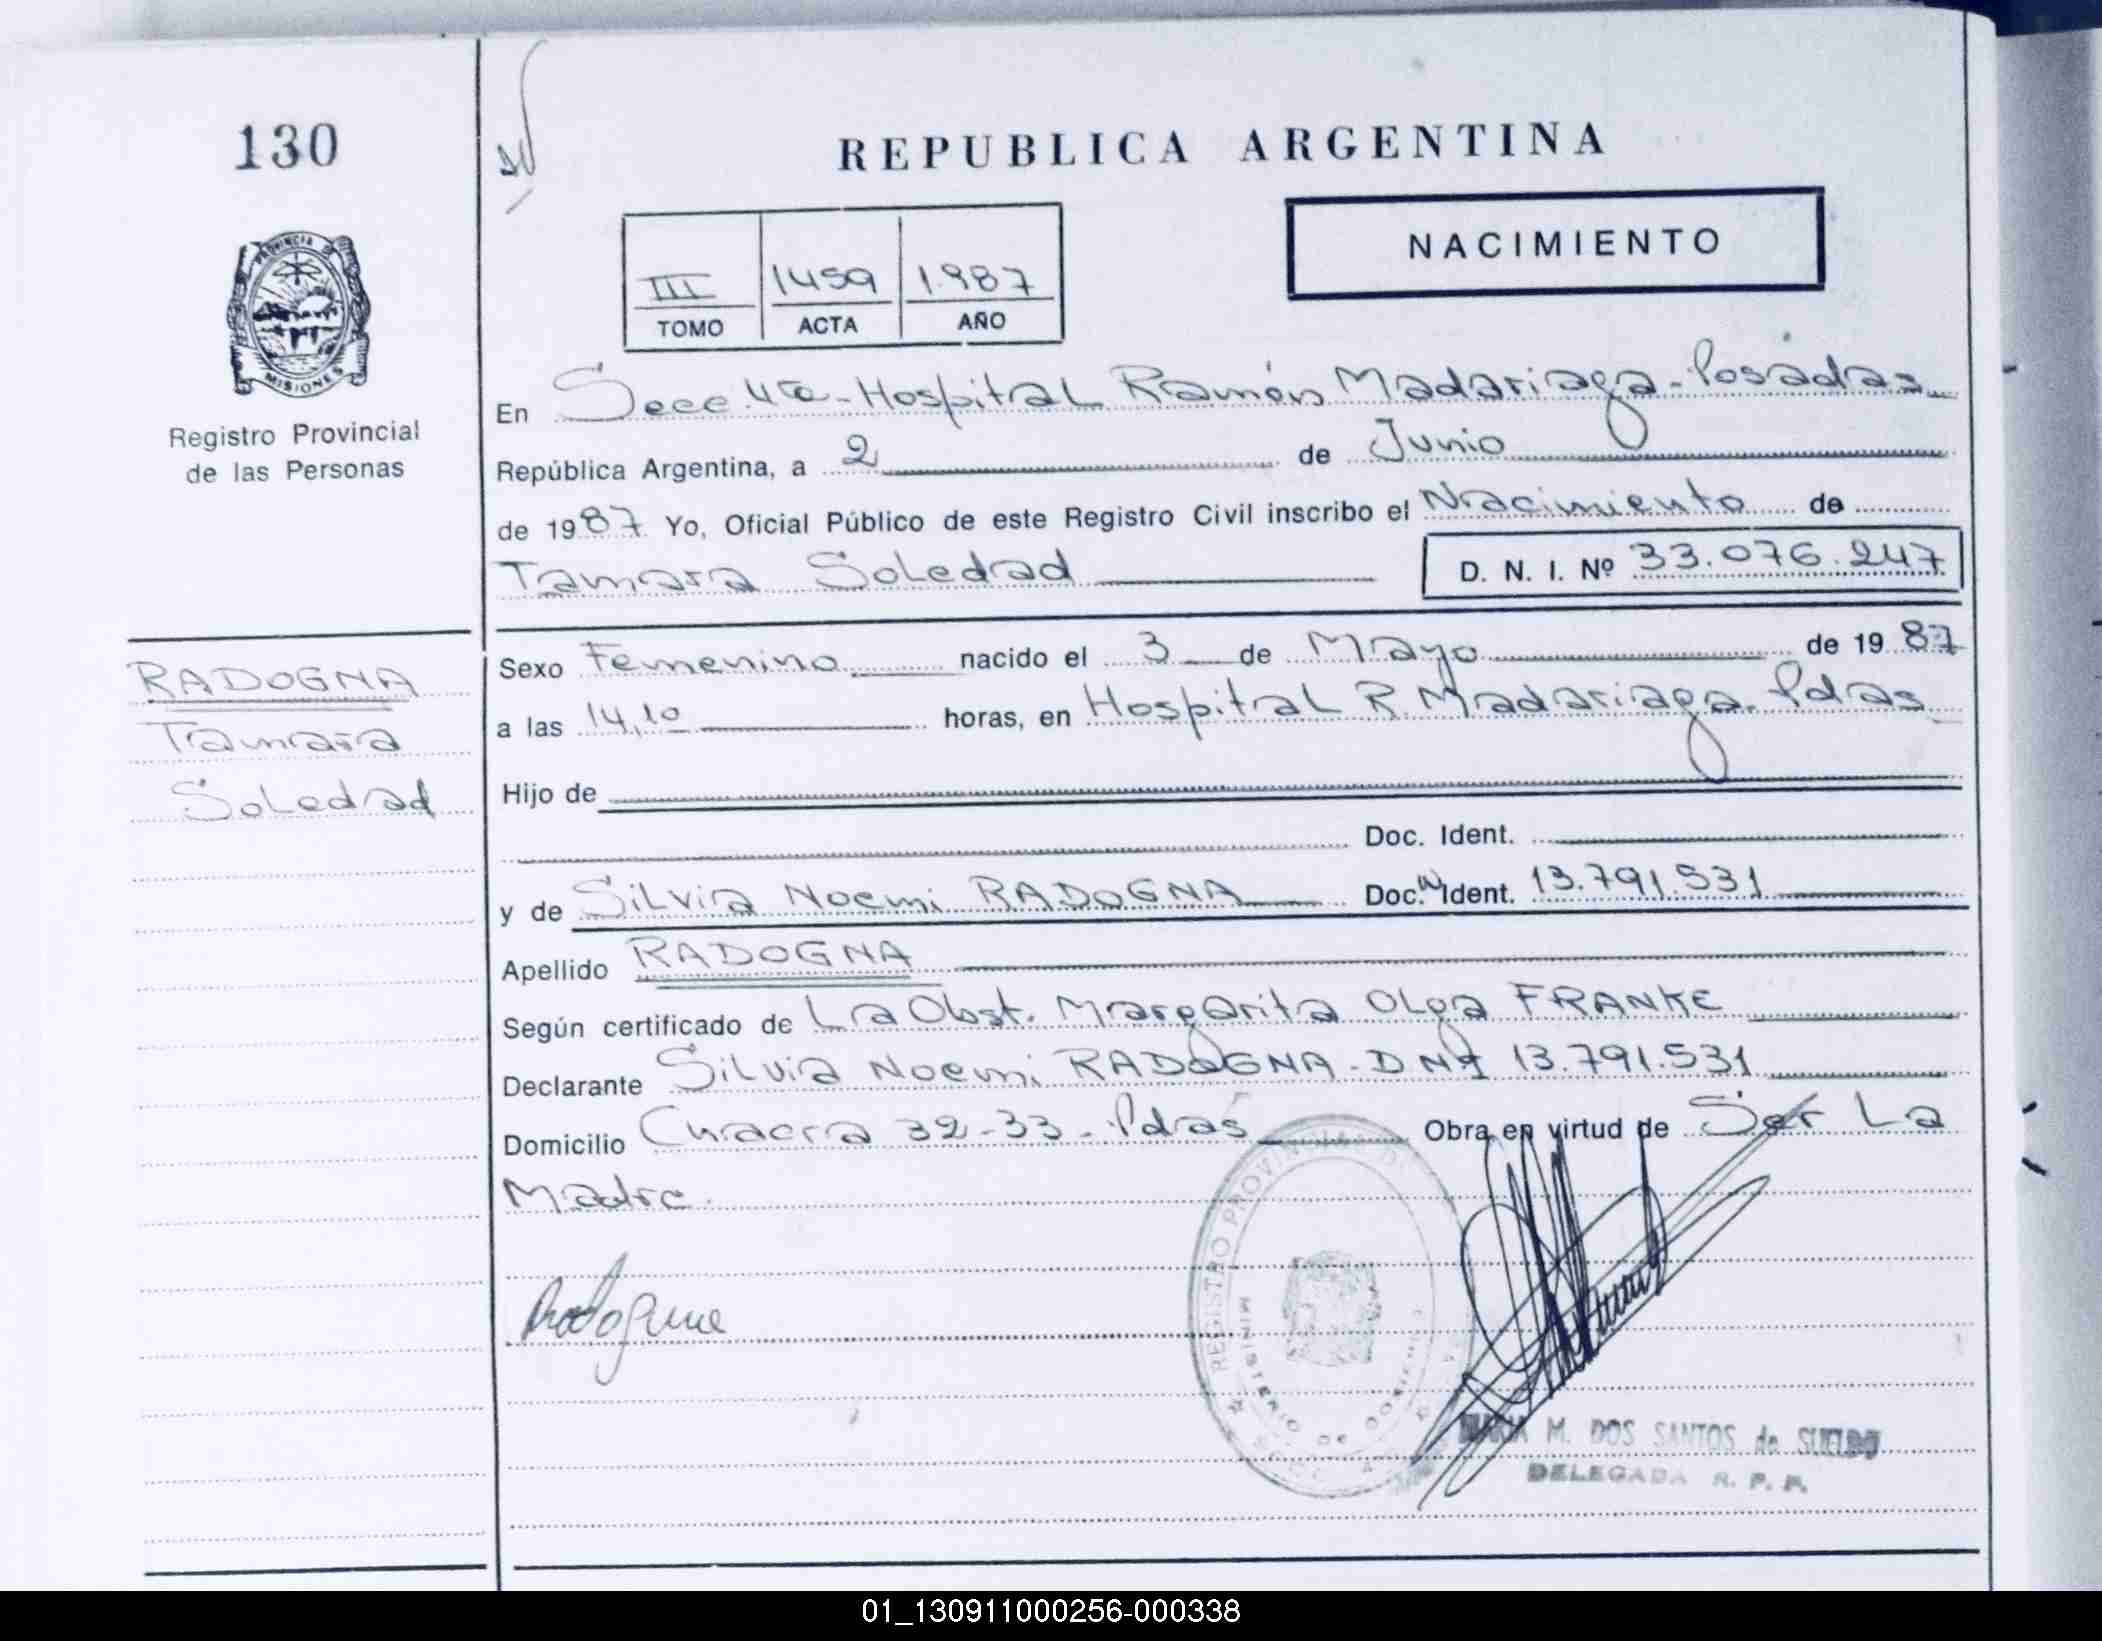 130
REPUBLICA ARGENTINA
NACIMIENTO
III 1459 1.987
TOMO ACTA AÑO
PROVINCIA D
MISIONES
Registro Provincial
de las Personas
En Secc. 4ta - Hospital Ramón Madariaga - Posadas
República Argentina, a 2 de Junio
de 1987 Yo, Oficial Público de este Registro Civil inscribo el Nacimiento de
Tamara Soledad D. N. I. Nº 33.076.247
RADOGNA
Tamara
Soledad
Sexo Femenino nacido el 3 de Mayo de 1987
a las 14,10 horas, en Hospital R. Madariaga - Pdas
Hijo de
Doc. Ident.
y de Silvia Noemi RADOGNA Doc. Ident. 13.791.531
Apellido RADOGNA
Según certificado de La Obst. Margarita Olga FRANKE
Declarante Silvia Noemi RADOGNA - DNI 13.791.531
Domicilio Chacra 32-33 - Pdas Obra en virtud de Ser La
Madre.
REGISTRO PROVINCIAL DE
MINISTERIO DE GOBIERNO
M. DOS SANTOS de SUELDO
DELEGADA R. P. P.
01_130911000256-000338